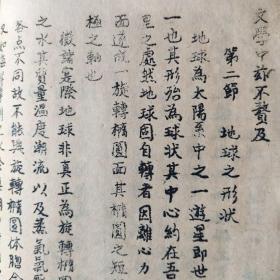 文學中玆不贅及
第二節　地球之形狀
地球為太陽系中之一遊星即世
一也其形殆為球狀其中心約在吾
里之處然地球因自轉者因離心力
面遂成一旋轉橢圓面其橢圓之短
極之軸也
徵諸實際地球非真正為旋轉橢
之水其質量溫度潮流以及蒸氣氣
各点不同故不能與旋轉橢圓体脗合